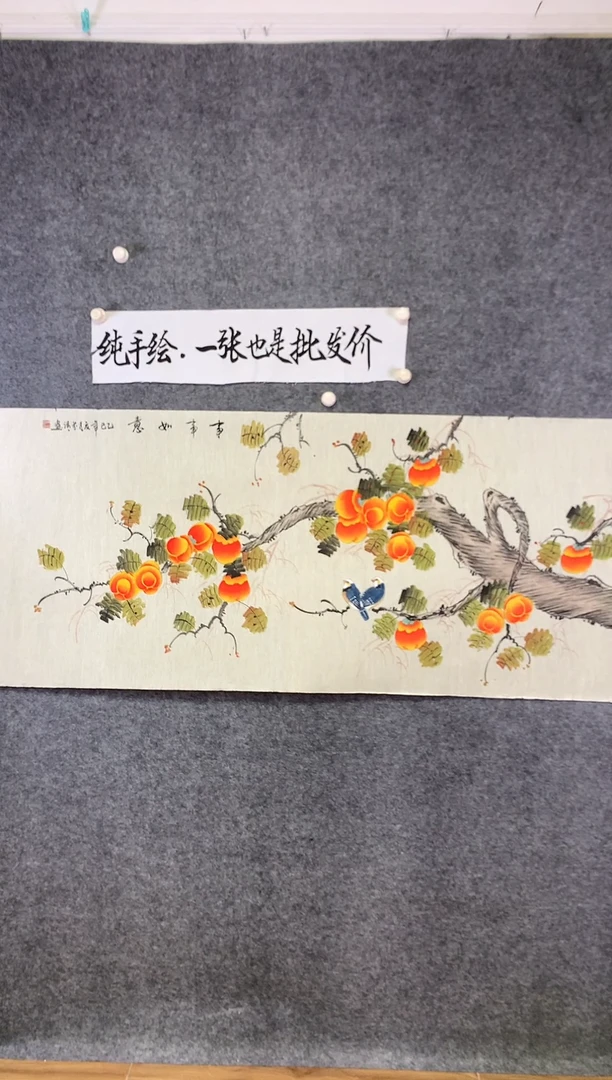 纯手绘.一张也是批发价
事事如意